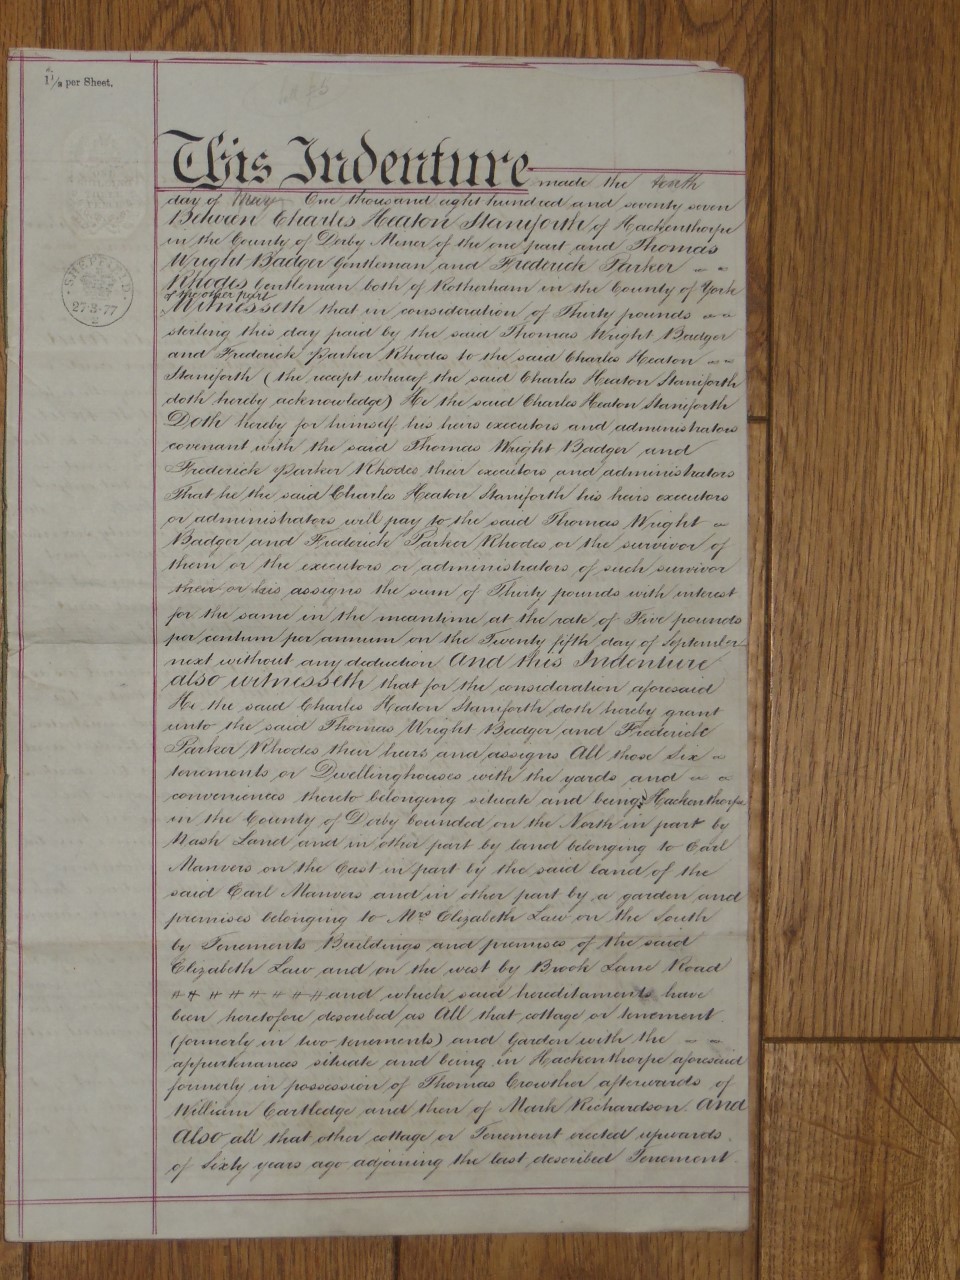 1 1/2 per Sheet.
This Indenture made the tenth
day of May One thousand eight hundred and seventy seven
Between Charles Heaton Staniforth of Hackenthorpe
in the County of Derby Miner of the one part and Thomas
Wright Badger Gentleman and Frederick Parker
Rhodes Gentleman both of Rotherham in the County of York
of the other part
Witnesseth that in consideration of Thirty pounds
SHEFFIELD
27·3·77
sterling this day paid by the said Thomas Wright Badger
and Frederick Parker Rhodes to the said Charles Heaton
Staniforth (the receipt whereof the said Charles Heaton Staniforth
doth hereby acknowledge) He the said Charles Heaton Staniforth
Doth hereby for himself his heirs executors and administrators
covenant with the said Thomas Wright Badger and
Frederick Parker Rhodes their executors and administrators
That he the said Charles Heaton Staniforth his heirs executors
or administrators will pay to the said Thomas Wright
Badger and Frederick Parker Rhodes or the survivor of
them or the executors or administrators of such survivor
their or his assigns the sum of Thirty pounds with interest
for the same in the meantime at the rate of Five pounds
per centum per annum on the Twenty fifth day of September
next without any deduction And this Indenture
also witnesseth that for the consideration aforesaid
He the said Charles Heaton Staniforth doth hereby grant
unto the said Thomas Wright Badger and Frederick
Parker Rhodes their heirs and assigns All those Six
tenements or Dwellinghouses with the yards and
conveniences thereto belonging situate and being Hackenthorpe
in the County of Derby bounded on the North in part by
Wash Land and in other part by land belonging to Earl
Manvers on the East in part by the said land of the
said Earl Manvers and in other part by a garden and
premises belonging to Mrs Elizabeth Law on the South
by Tenements Buildings and premises of the said
Elizabeth Law and on the west by Brook Lane Road
and which said hereditaments have
been heretofore described as All that cottage or tenement
(formerly in two tenements) and Garden with the
appurtenances situate and being in Hackenthorpe aforesaid
formerly in possession of Thomas Crowther afterwards of
William Cartledge and then of Mark Richardson. And
Also all that other cottage or Tenement erected upwards
of Sixty years ago adjoining the last described Tenement